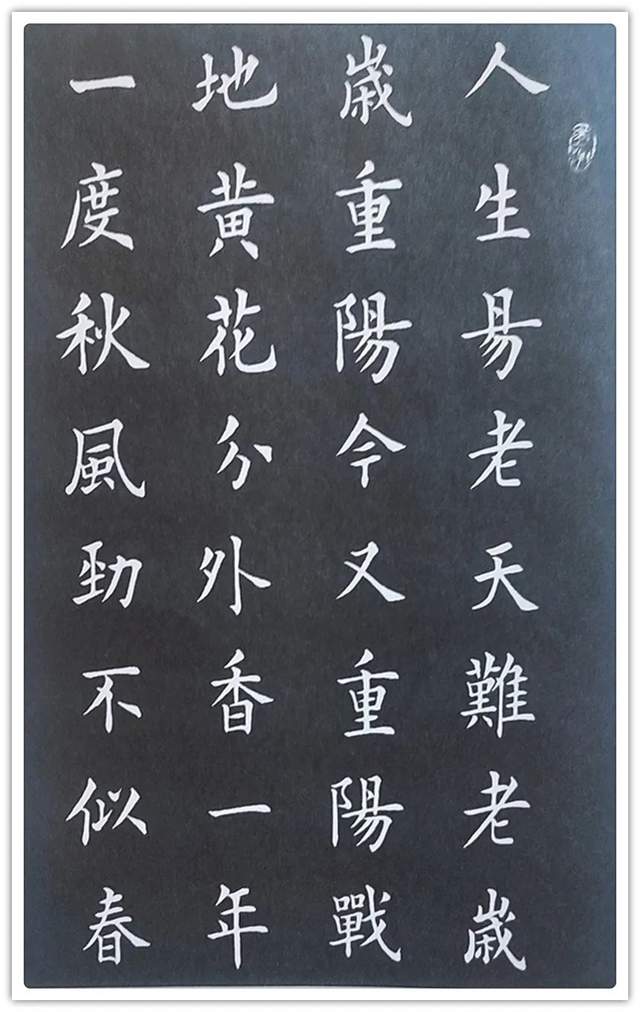 人生易老天難老歲
歲重陽今又重陽戰
地黄花分外香一年
一度秋風勁不似春